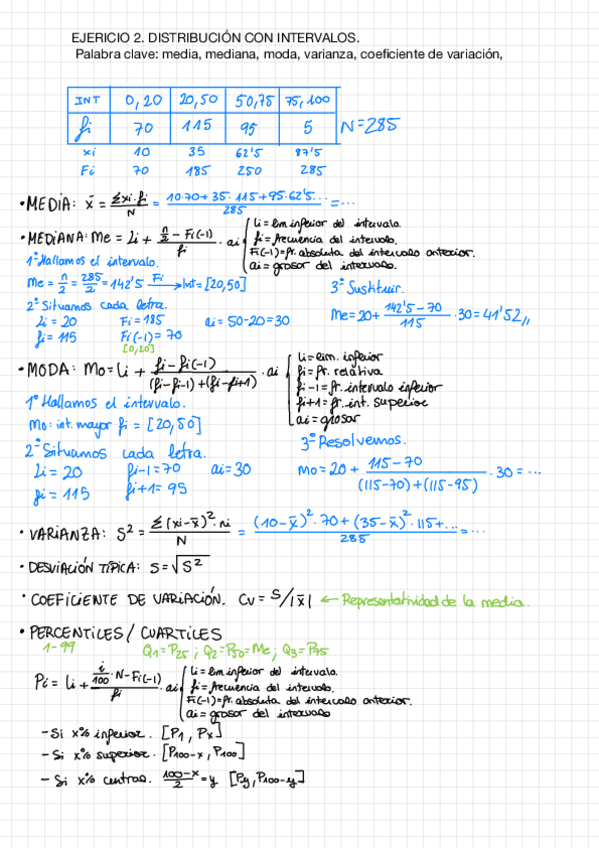 EJERICIO 2. DISTRIBUCIÓN CON INTERVALOS.
Palabra clave: media, mediana, moda, varianza, coeficiente de variación,
INT 0,20 20,50 50,75 75,100
fi 70 115 95 5 N=285
xi 10 35 62'5 87'5
Fi 70 185 250 285
• MEDIA: x̄ = Σxi·fi / N = 10·70+35·115+95·62'5... / 285 = ...
• MEDIANA: Me = Li + (n/2 - Fi(-1)) / fi · ai
Li = lím inferior del intervalo.
fi = frecuencia del intervalo.
Fi(-1) = fr. absoluta del intervalo anterior.
ai = grosor del intervalo.
1º Hallamos el intervalo.
Me = n/2 = 285/2 = 142'5 Fi → Int = [20,50]
2º Situamos cada letra.
Li = 20 Fi = 185 ai = 50-20 = 30
fi = 115 Fi(-1) = 70
[0,20]
3º Sustituir.
Me = 20 + (142'5 - 70) / 115 · 30 = 41'52,,
• MODA: Mo = Li + (fi - fi(-1)) / ((fi - fi-1) + (fi - fi+1)) · ai
Li = lim. inferior
fi = fr. relativa
fi-1 = fr. intervalo inferior
fi+1 = fr. int. superior
ai = grosor
1º Hallamos el intervalo.
Mo: int. mayor fi = [20,50]
2º Situamos cada letra.
Li = 20 fi-1 = 70 ai = 30
fi = 115 fi+1 = 95
3º Resolvemos.
Mo = 20 + (115-70) / ((115-70)+(115-95)) · 30 = ...
• VARIANZA: S² = Σ(xi-x̄)²·ni / N = (10-x̄)²·70+(35-x̄)²·115+... / 285 = ...
• DESVIACIÓN TÍPICA: S = √S²
• COEFICIENTE DE VARIACIÓN. Cv = S/|x̄| ← Representatividad de la media.
• PERCENTILES / CUARTILES
1-99 Q1=P25 ; Q2=P50=Me ; Q3=P75
Pi = Li + (i/100 · N - Fi(-1)) / fi · ai
Li = lím inferior del intervalo.
fi = frecuencia del intervalo.
Fi(-1) = fr. absoluta del intervalo anterior.
ai = grosor del intervalo
- Si x% inferior. [P1, Px]
- Si x% superior. [P100-x, P100]
- Si x% centros. (100-x)/2 = y [Py, P100-y]